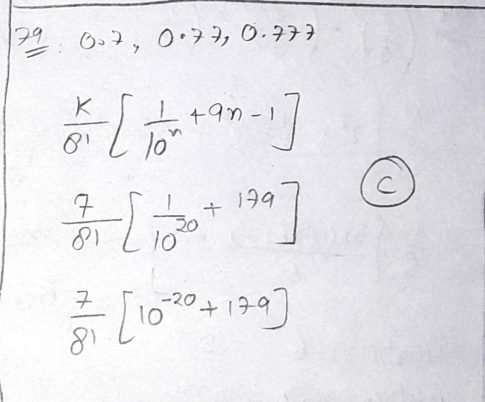 79. 0.7, 0.77, 0.777
K/81 [ 1/10^n + 9n - 1 ]
7/81 [ 1/10^20 + 179 ]
C
7/81 [ 10^-20 + 179 ]